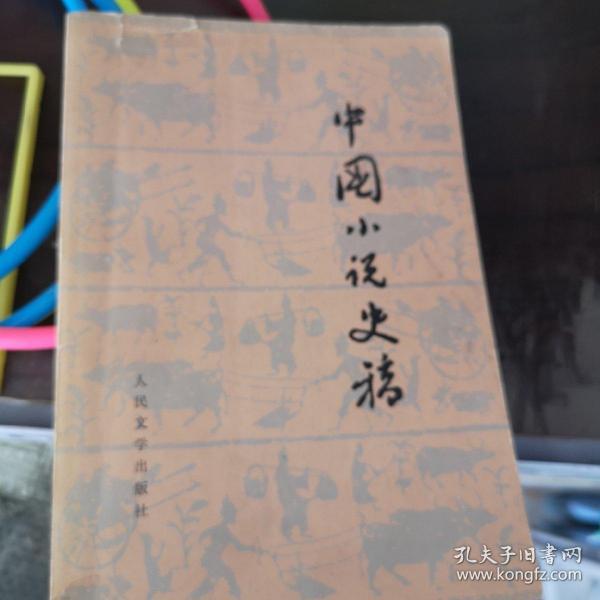 中国小说史稿
人民文学出版社
孔夫子旧书网
www.kongfz.com